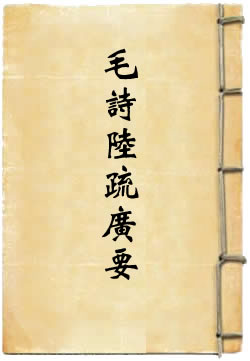 毛詩陸疏廣要